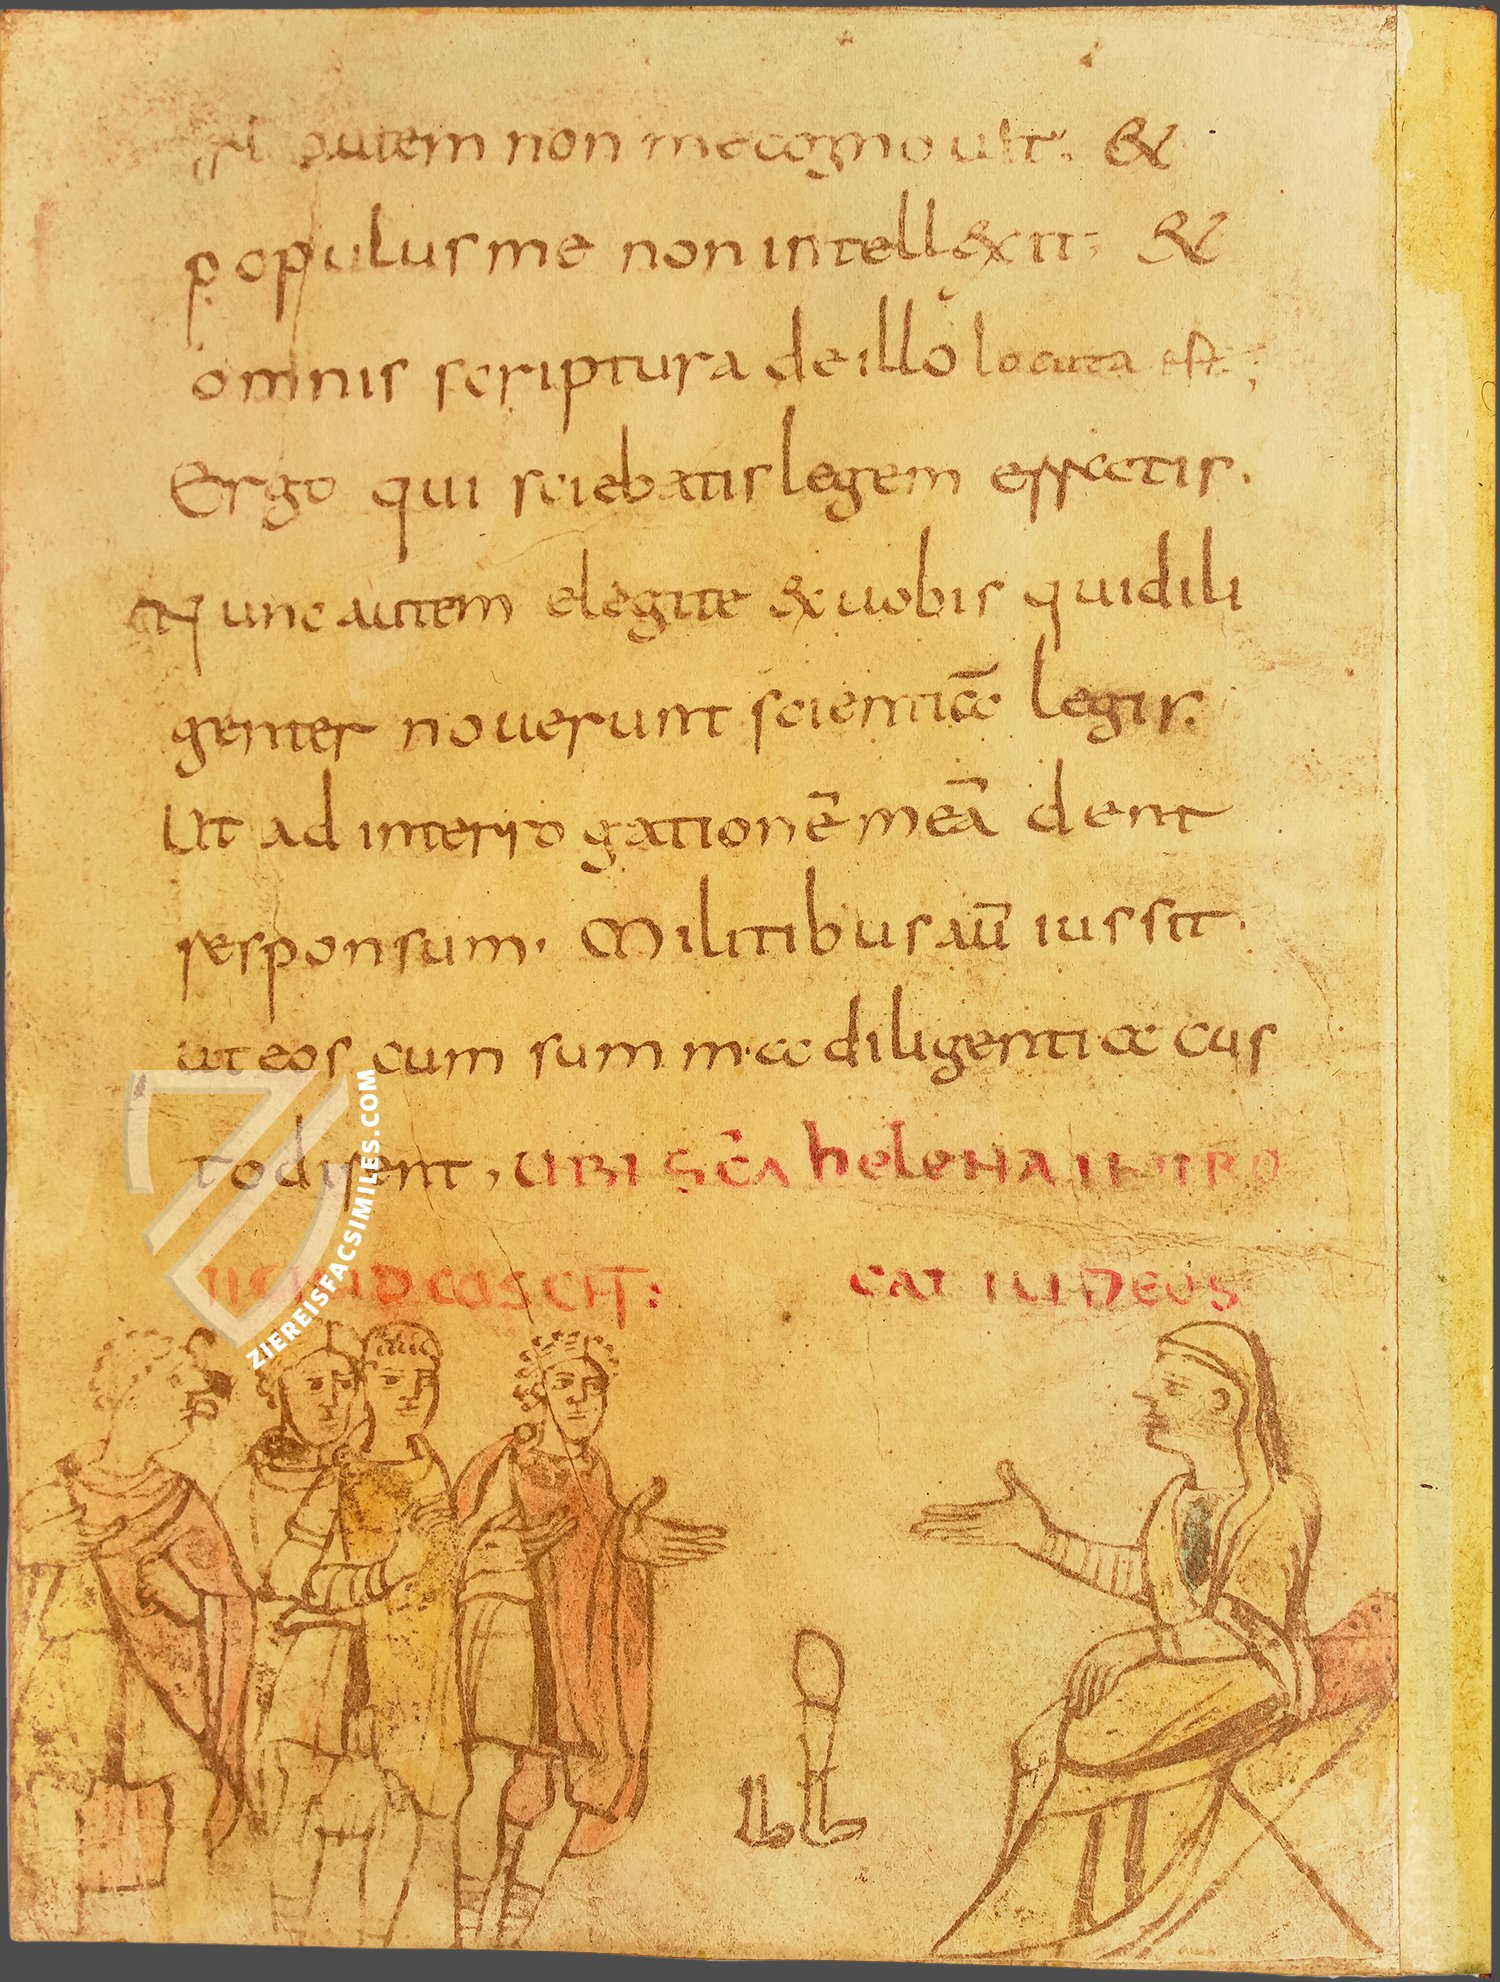 autem non me cognouit. &
populus me non intell&xit; &
omnis scriptura de illo locuta est;
Ergo qui sciebatis legem effecti s.
Nunc autem elegite & uobis qui dili
genter nouerunt scientiā legis.
Ut ad interrogationē meā dent
responsum. Militibus aū iussit.
ut eos cum summa diligentia cus
todirent, UBI SCĀ helena INTRO
CAT IUDEOS
ZIEREISFACSIMILES.COM